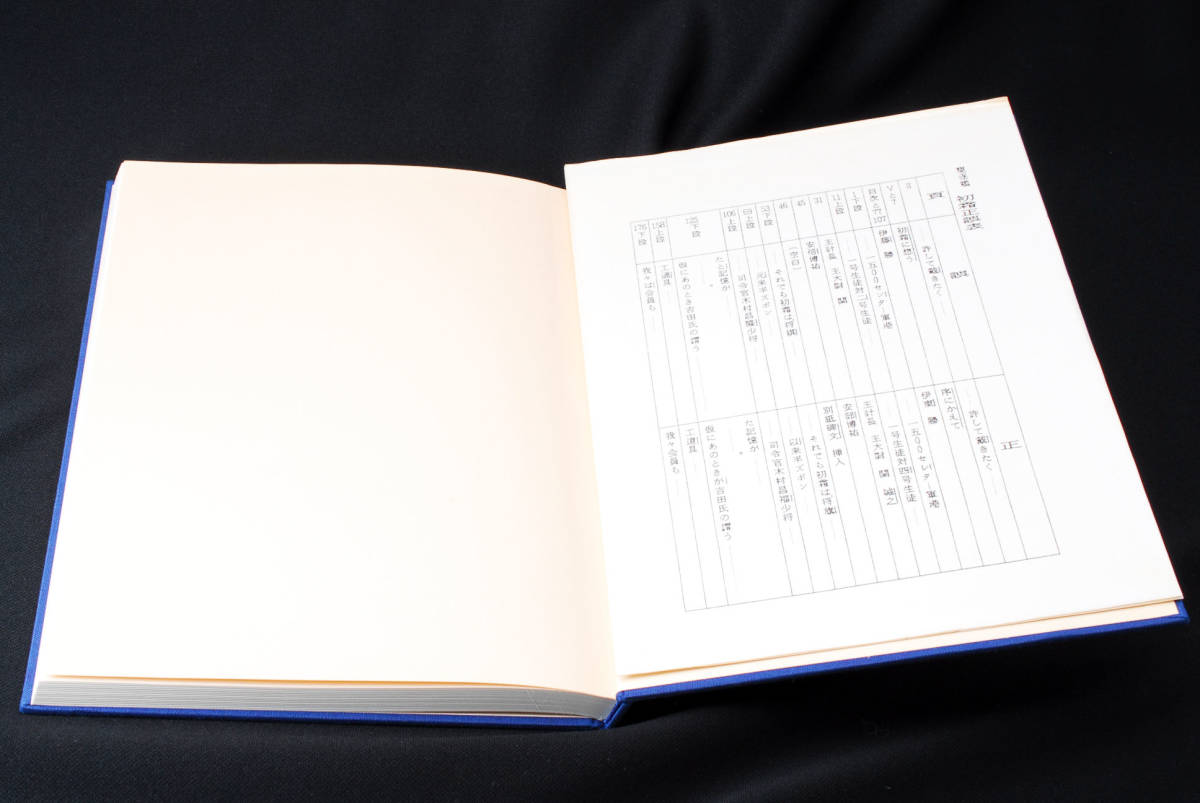 駆逐艦 初霜正誤表
頁 誤 正
3 許して戴きたく 許して戴きたく
Vと7 初霜に想う 序にかえて
目次と万107 伊藤 勝 伊東 勝
1下段 一五00センター軍港 一五00センター軍港
11上段 一号生徒対二号生徒 一号生徒対四号生徒
31 主計長 主大尉 関 主計長 主大尉 関 誠之
45 安部博祐 安部博祐
46 (空白) 別紙碑文 挿入
53下段 それでも初霜は将旗 それでも初霜は将旗
69上段 元来半ズボン 以来半ズボン
106上段 司令官木村昌福少将 司令官木村昌福少将
125下段 たと記憶が た記憶が
158上段 仮にあのとき吉田氏の謂う 仮にあのときが吉田氏の謂う
176下段 工道具 工道具
我々は会員も 我々会員も